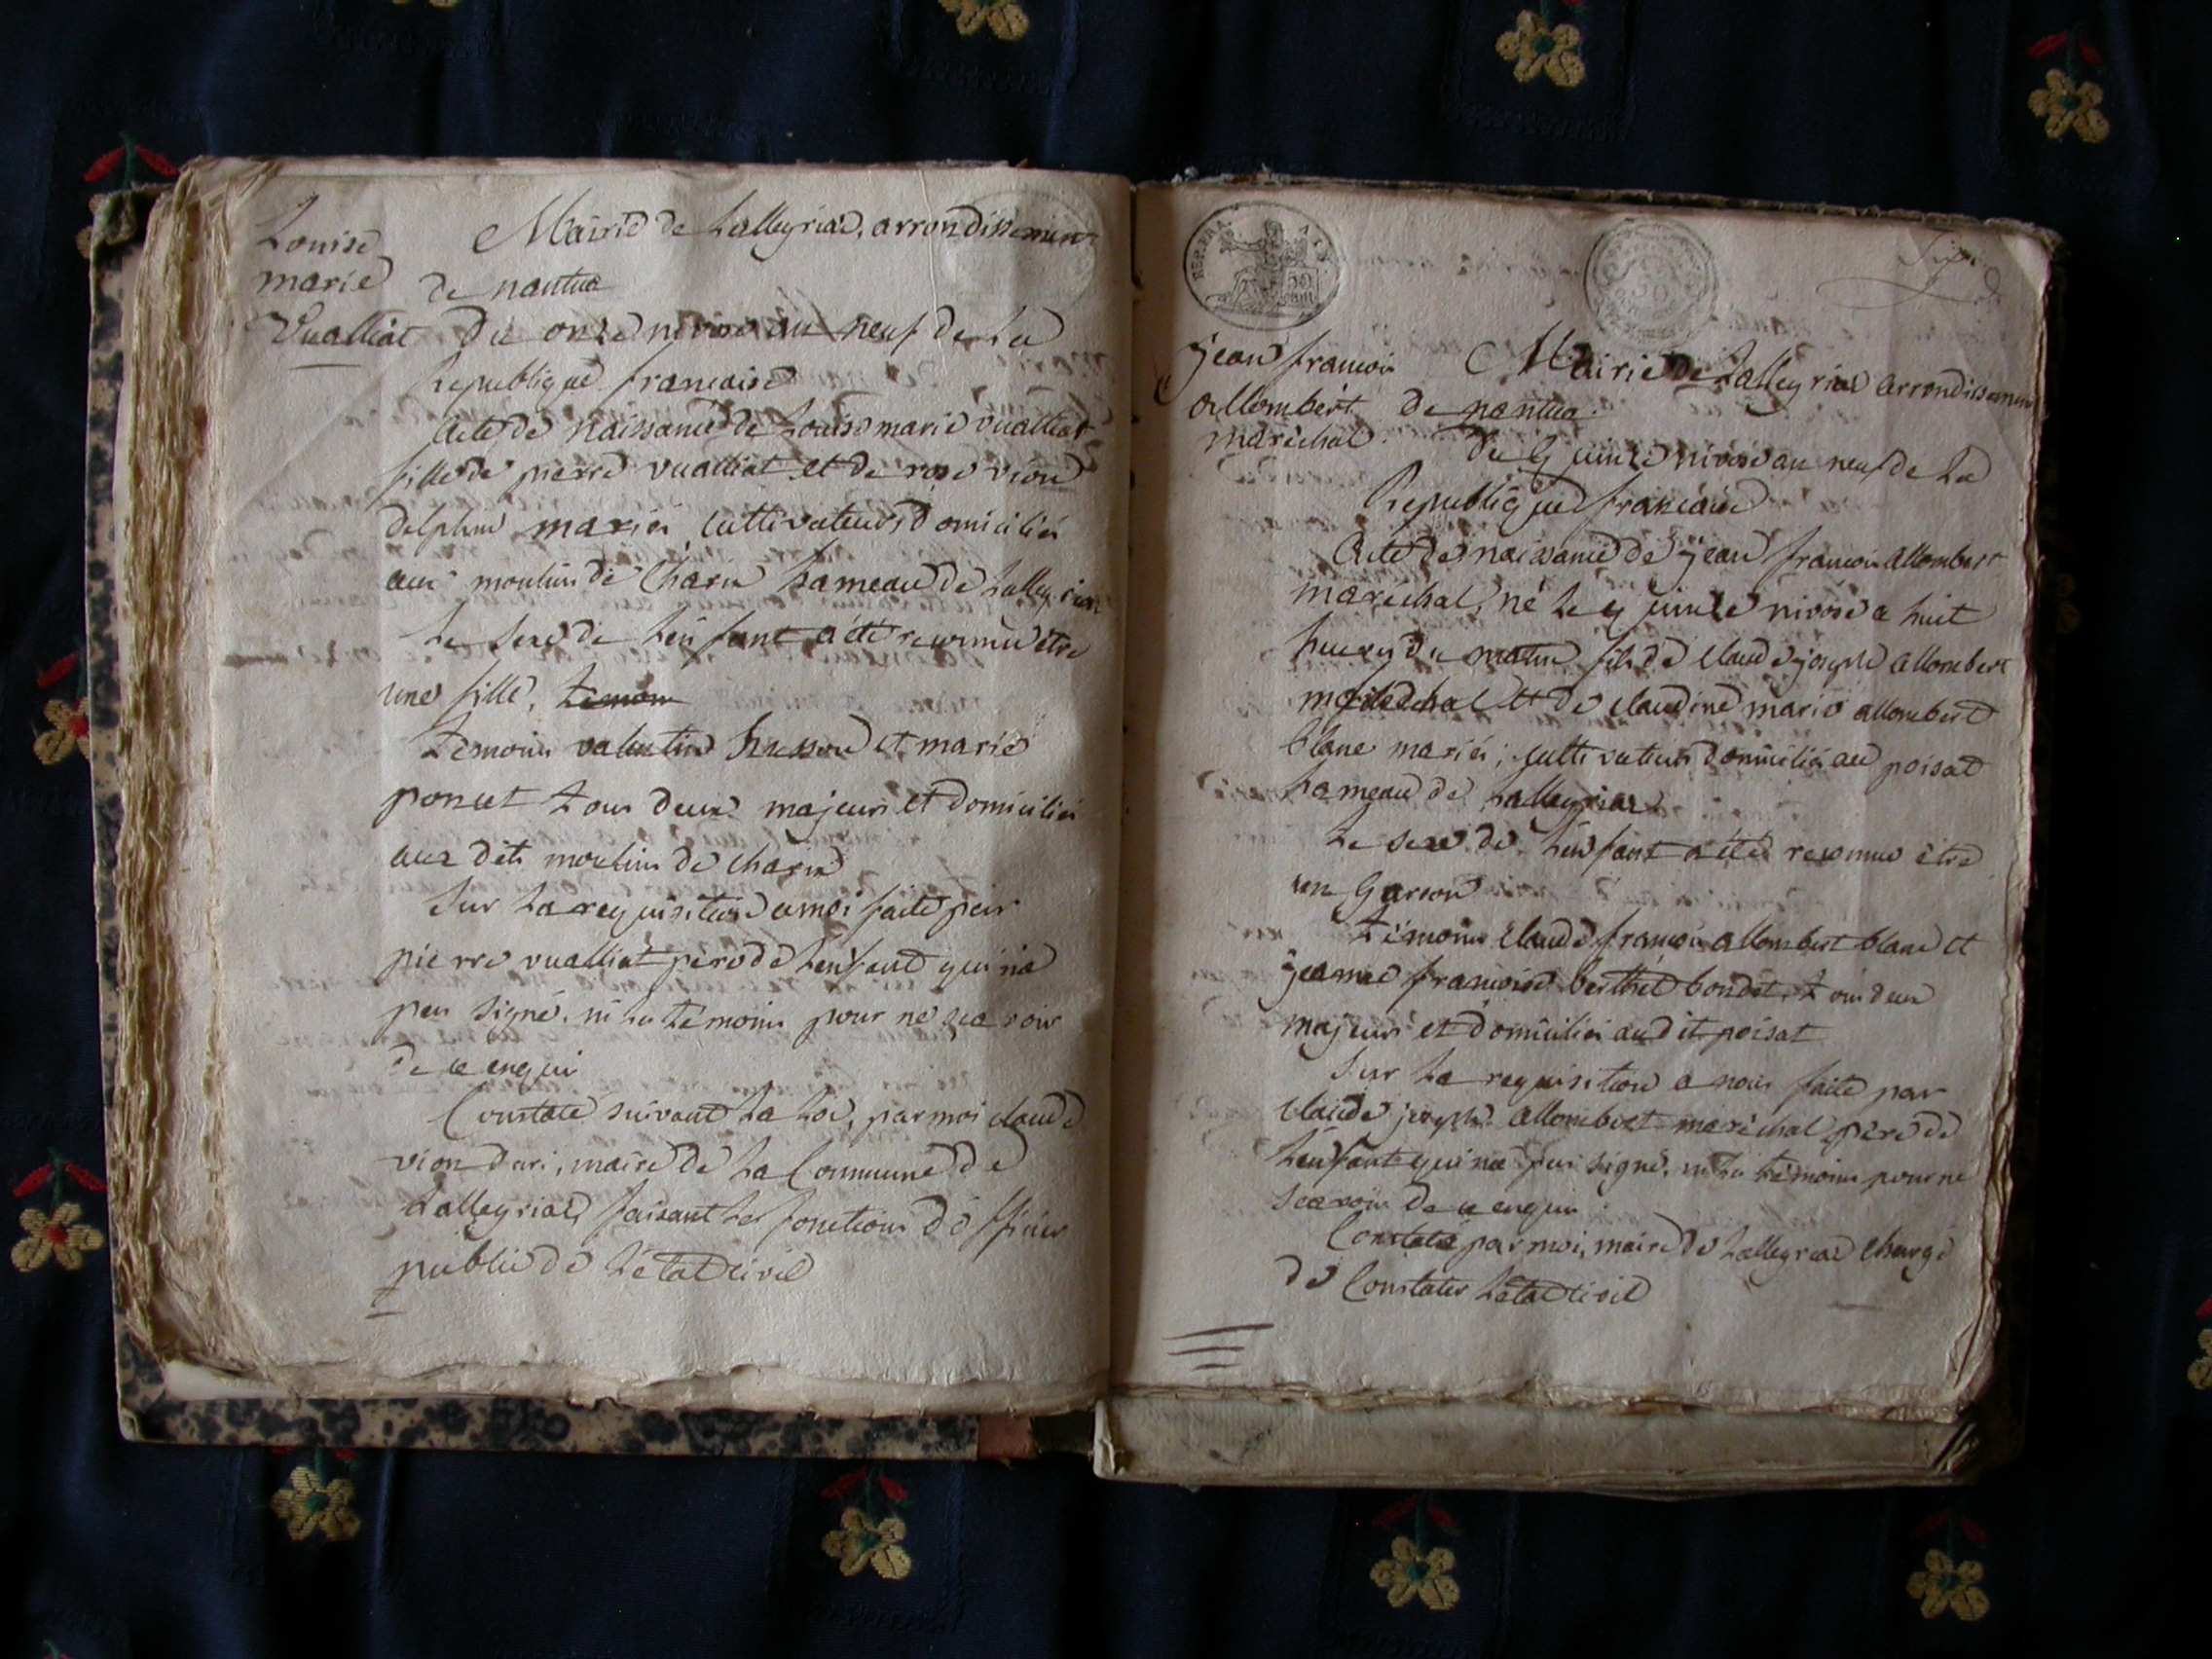 Louise
marie
Vualliat
Mairie de Lalleyriat, arrondissement
de nantua
Du onze nivose an neuf de La
Republique francaise
Acte de naissance de Louise marie vualliat
fille de pierre vualliat et de rose vion
delphin mariés, cultivateurs domiciliés
aux moulin de Charix hameau de Lalleyriat
Le sexe de Lenfant a été reconnu être
une fille, temoin
Temoins valentin husson et marie
poncet tous deux majeurs et domiciliés
aux dits moulins de charix
Sur La requisition a moi faite par
pierre vualliat pere de Lenfant qui na
peu signé, ni les témoins pour ne sçavoir
de ce enquis
Constaté suivant La Loi, par moi claude
vion duri, maire de La Commune de
Lalleyriat, faisant les fonctions dofficier
public de Létat civil
REP. FRA.
50
jean francois
allombert
maréchal
Mairie de Lalleyriat arrondissement
de nantua
du quinze nivose an neuf de La
Republique francaise
Acte de naissance de jean francois allombert
maréchal, né Le quinze nivose a huit
heures du matin fils de claude joseph allombert
maréchal et de claudine marie allombert
blanc mariés, cultivateurs domiciliés au poisat
hameau de Lalleyriat
Le sexe de Lenfant a été reconnu être
un Garcon
Témoins claude francois allombert blanc et
jeanne francoise berthet bondet, tous deux
majeurs et domiciliés au dit poisat
Sur La requisition a nous faite par
claude joseph allombert maréchal pere de
Lenfant qui na peu signé, ni les témoins pour ne
scavoir de ce enquis
Constaté par moi, maire de Lalleyriat chargé
de Constater Létat civil